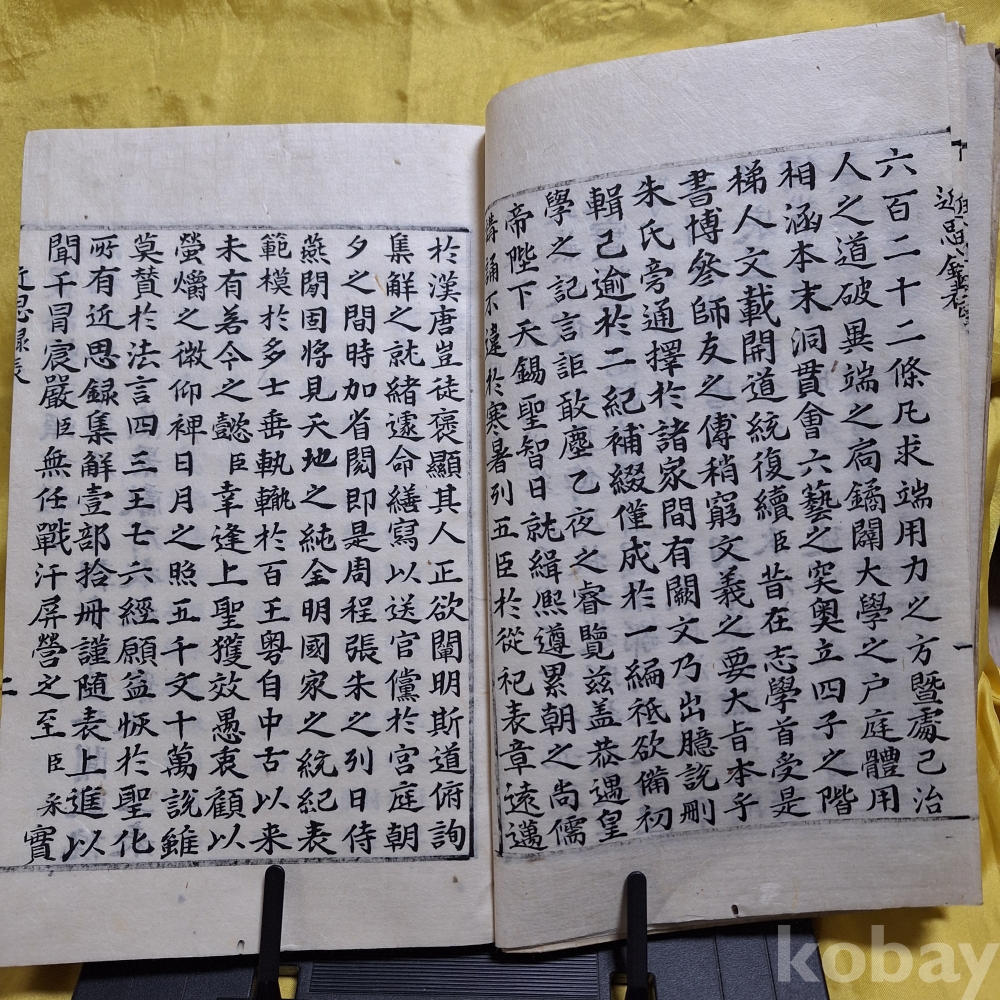 六百二十二條凡求端用力之方暨處己治
人之道破異端之扃鐍闢大學之户庭體用
相涵本末洞貫會六藝之突奧立四子之階
梯人文載開道統復續臣昔在志學首受是
書博參師友之傳稍窮文義之要大旨本乎
朱氏旁通擇於諸家間有闕文乃出臆說刪
輯已逾於二紀補綴僅成於一編祇欲備初
學之記言詎敢塵乙夜之睿覽茲盖恭遇皇
帝陛下天錫聖智日就緝熈遵累朝之尚儒
講誦不違於寒暑列五臣於從祀表章遠邁
於漢唐豈徒褒顯其人正欲闡明斯道俯詢
集解之就緒遽命繕寫以送官儻於宮庭朝
夕之間時加省閱即是周程張朱之列日侍
燕閒固將見天地之純全明國家之統紀表
範模於多士垂軌轍於百王粤自中古以来
未有若今之懿臣幸逢上聖獲效愚衷顧以
螢爝之微仰裨日月之照五千文十萬說雖
莫賛於法言四三王七六經願益恢於聖化
所有近思録集解壹部拾冊謹随表上進以
聞干冒宸嚴臣無任戰汗屏營之至臣永實
近思録表
二
kobay